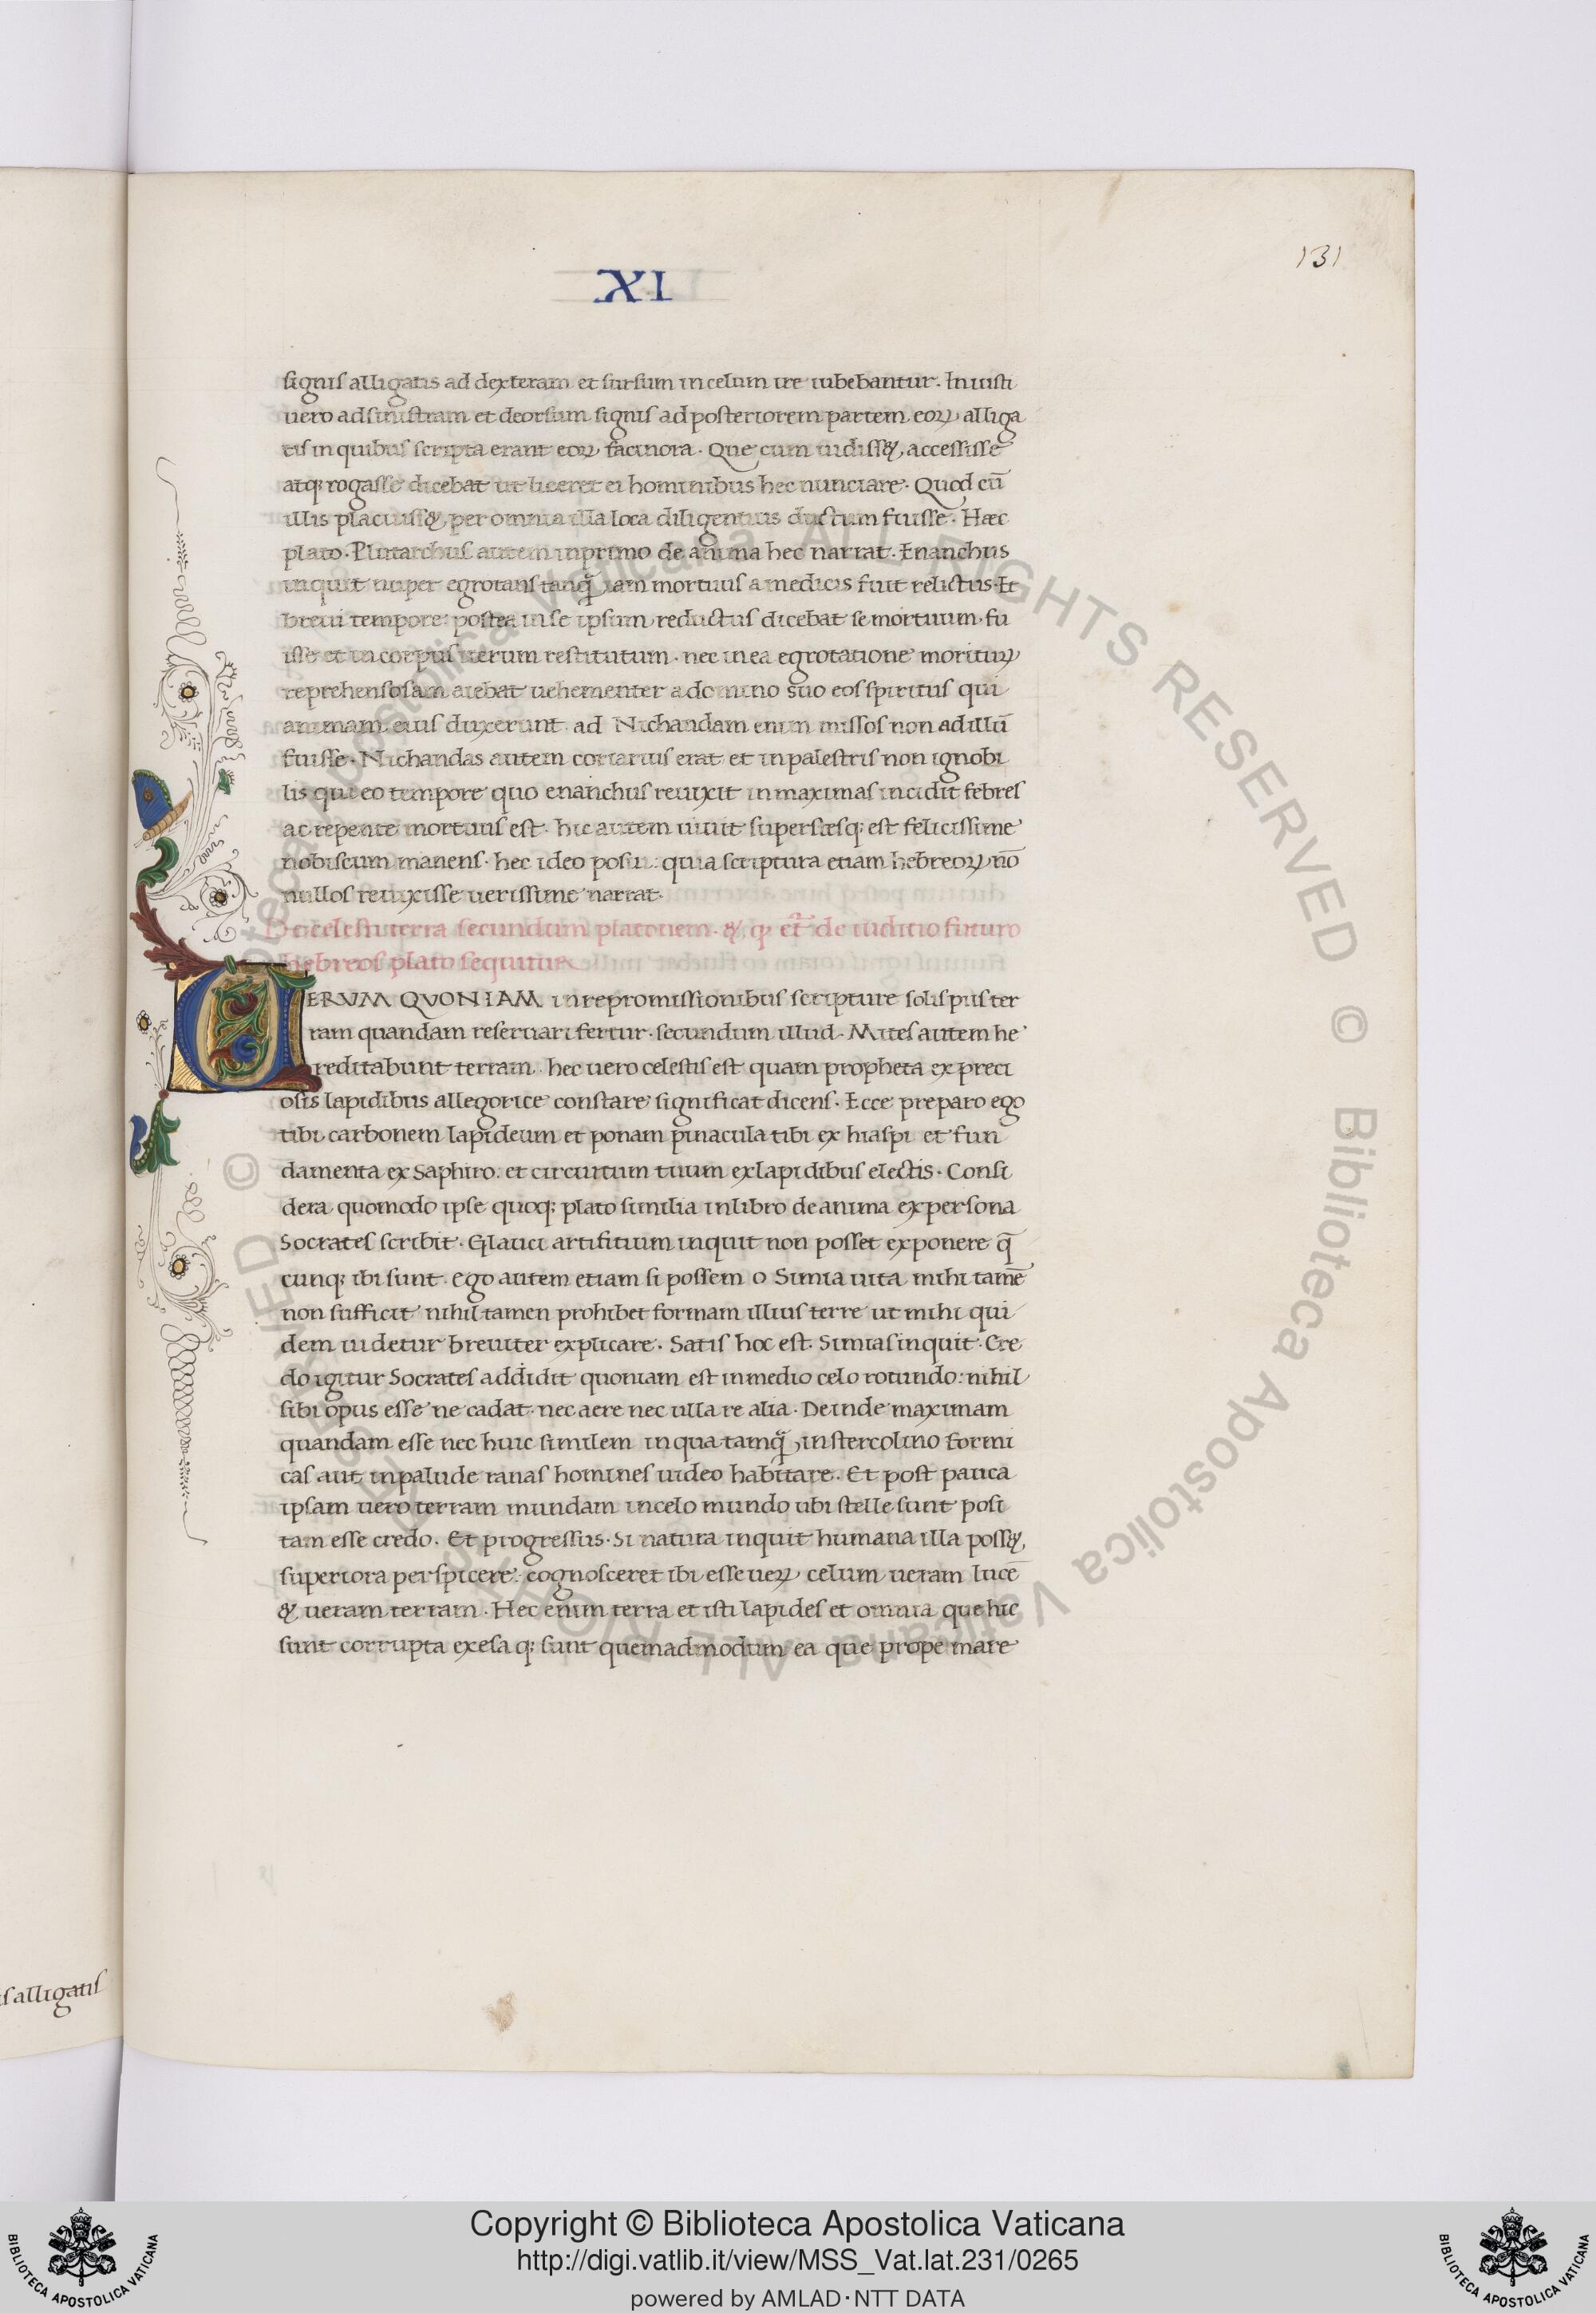 XI
131
signis alligatis ad dexteram et sursum in celum ire iubebantur. Iniusti
uero ad sinistram et deorsum signis ad posteriorem partem eoꝝ alliga
tis in quibus scripta erant eoꝝ facinora. Que cum uidiss&, accessisse
atq; rogasse dicebat ut liceret ei hominibus hec nunciare. Quod cū
illis placuiss&, per omnia illa loca diligentius ductum fuisse. Hæc
plato. Plutarchus autem in primo de anima hec narrat. Enanchus
inquit nuper egrotans tanq̃ iam mortuus a medicis fuit relictus. Et
breui tempore postea in se ipsum reductus dicebat se mortuum fu
isse et in corpus iterum restitutum. nec in ea egrotatione morituꝝ
reprehensos am aiebat uehementer a domino suo eos spiritus qui
animam eius duxerunt. ad Nichandam enim missos non ad illū
fuisse. Nichandas autem coriarius erat et in palestris non ignobi
lis qui eo tempore quo enanchus reuixit in maximas incidit febres
ac repente mortuus est. hic autem uiuit superstesq; est felicissime
nobiscum manens. hec ideo posui: quia scriptura etiam hebreoꝝ nō
nullos reuixisse uerissime narrat.
De celesti terra secundum platonem. & q̃ et̃ de iuditio futuro
hebreos plato sequitur
VERVM QVONIAM in repromissionibus scripture solis pus ter
ram quandam reseruari fertur. secundum illud. Mites autem he
reditabunt terram. hec uero celestis est quam propheta ex preci
osis lapidibus allegorice constare significat dicens. Ecce preparo ego
tibi carbonem lapideum et ponam pinacula tibi ex hiaspi et fun
damenta ex Saphiro. et circuitum tuum ex lapidibus electis. Consi
dera quomodo ipse quoq; plato similia in libro de anima ex persona
Socrates scribit. Glauci artifitium inquit non posset exponere q̄
cunq; ibi sunt. ego autem etiam si possem o Simia uita mihi tamē
non sufficit nihil tamen prohibet formam illius terre ut mihi qui
dem uidetur breuiter explicare. Satis hoc est. Simias inquit. Cre
do igitur Socrates addidit quoniam est in medio celo rotundo: nihil
sibi opus esse ne cadat. nec aere nec ulla re alia. Deinde maximam
quandam esse nec huic similem in qua tamq̃ in stercolino formi
cas aut in palude ranas homines uideo habitare. Et post pauca
ipsam uero terram mundam in celo mundo ubi stelle sunt posi
tam esse credo. Et progressus. Si natura inquit humana illa poss&,
superiora perspicere: cognosceret ibi esse ueꝝ celum ueram lucē
& ueram terram. Hec enim terra et isti lapides et omnia que hic
sunt corrupta exesa q; sunt quemadmodum ea que prope mare
is alligatis
Copyright © Biblioteca Apostolica Vaticana
http://digi.vatlib.it/view/MSS_Vat.lat.231/0265
powered by AMLAD·NTT DATA
BIBLIOTECA APOSTOLICA VATICANA
BIBLIOTECA APOSTOLICA VATICANA
© Biblioteca Apostolica Vaticana ALL RIGHTS RESERVED © Biblioteca Apostolica Vaticana ALL RIGHTS RESERVED